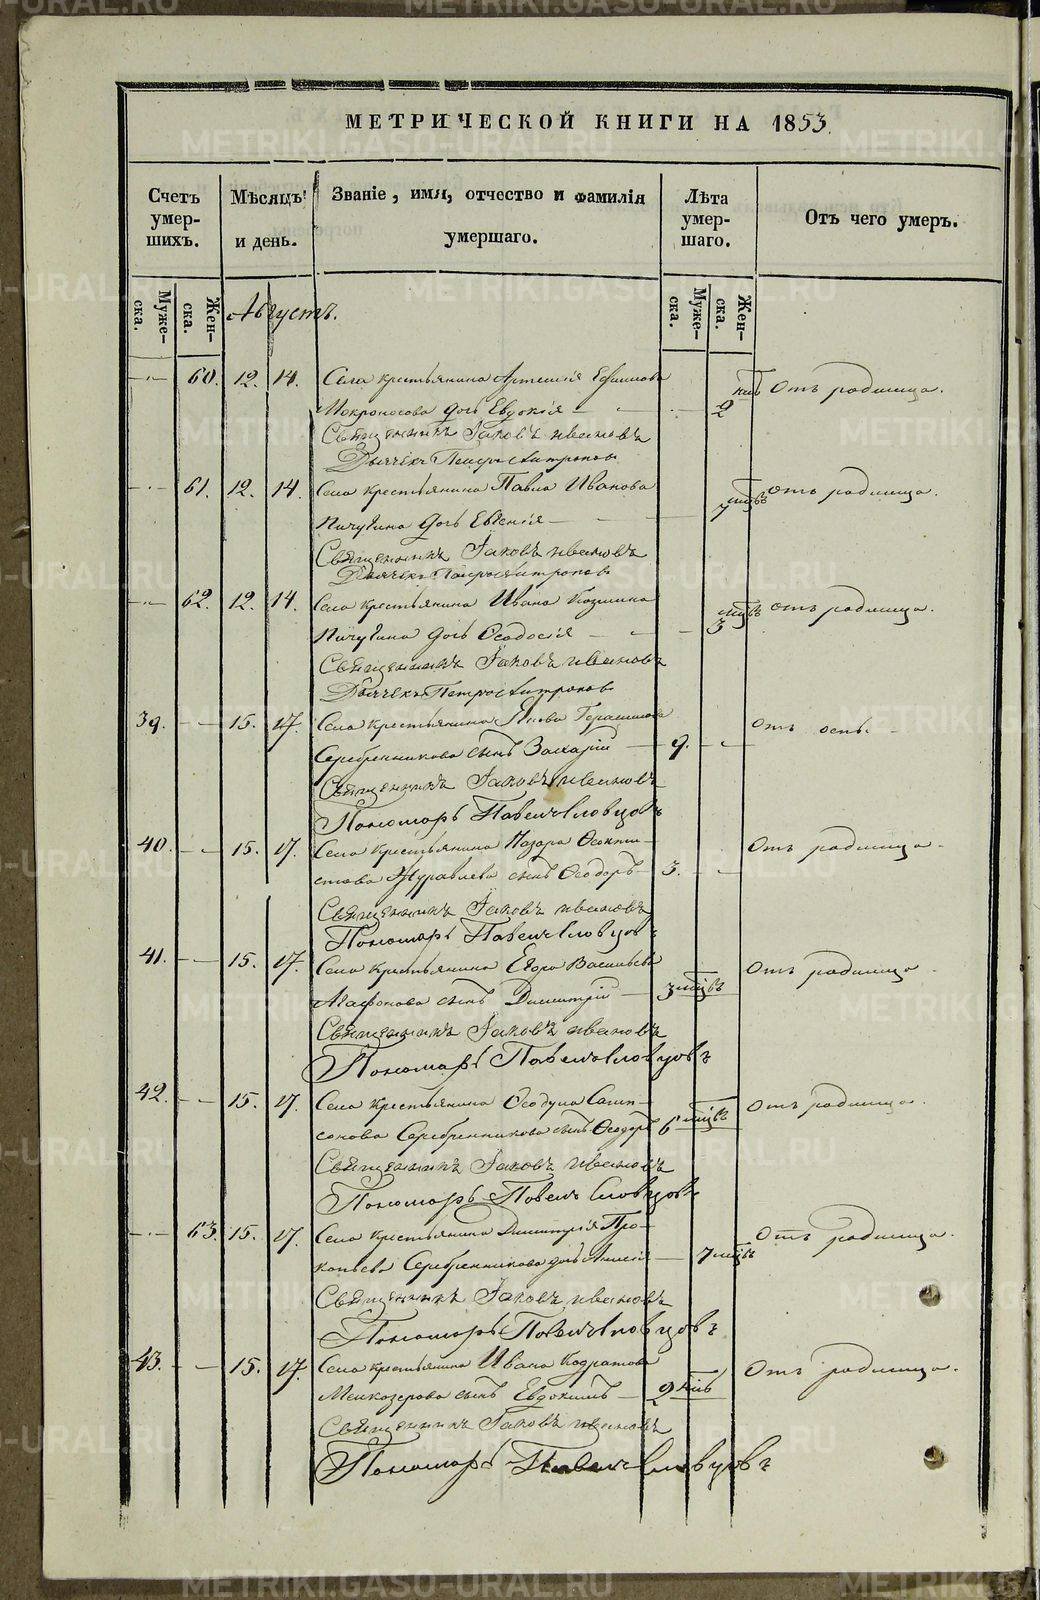 МЕТРИЧЕСКОЙ КНИГИ НА 1853.
Счетъ умер-шихъ. Мѣсяцъ и день. Званіе, имя, отчество и фамилія умершаго. Лѣта умер-шаго. Отъ чего умеръ.
Муже-ска. Жен-ска. Августъ. Муже-ска. Жен-ска.
60. 12. 14. Села крестьянина Артемія Ефимова Отъ родимца.
Мокроносова дочь Евдокія 2
Священникъ Іаковъ Ивановъ
Дьячекъ Петръ
61. 12. 14. Села крестьянина Павла Иванова 7 мцвъ отъ родимца.
Пичугина дочь Евгенія
Священникъ Іаковъ Ивановъ
Дьячекъ Петръ
62. 12. 14. Села крестьянина Ивана Козмина 3 мцвъ отъ родимца.
Пичугина дочь Ѳеодосія
Священникъ Іаковъ Ивановъ
Дьячекъ Петръ
39. 15. 17. Села крестьянина Якова Герасимова Отъ оспы.
Серебренникова сынъ Захарій 9.
Священникъ Іаковъ Ивановъ
Пономарь Павелъ Словцовъ
40. 15. 17. Села крестьянина Назара Ѳеокти- Отъ родимца.
стова Журавлева сынъ Ѳеодоръ 3.
Священникъ Іаковъ Ивановъ
Пономарь Павелъ Словцовъ
41. 15. 17. Села крестьянина Егора Васильева Отъ родимца
Агафонова сынъ Димитрій 3 мцвъ
Священникъ Іаковъ Ивановъ
Пономарь Павелъ Словцовъ
42. 15. 17. Села крестьянина Ѳедула Самп- Отъ родимца.
сонова Серебренникова сынъ Ѳеодоръ 6 мцвъ
Священникъ Іаковъ Ивановъ
Пономарь Павелъ Словцовъ
63. 15. 17. Села крестьянина Димитрія Про- Отъ родимца.
копьева Серебренникова дочь 7 мцвъ
Священникъ Іаковъ Ивановъ
Пономарь Павелъ Словцовъ
43. 15. 17. Села крестьянина Ивана Кодратова Отъ родимца.
Мелкозерова сынъ Евдокимъ 2
Священникъ Іаковъ Ивановъ
Пономарь Павелъ Словцовъ
METRIKI.GASO-URAL.RU